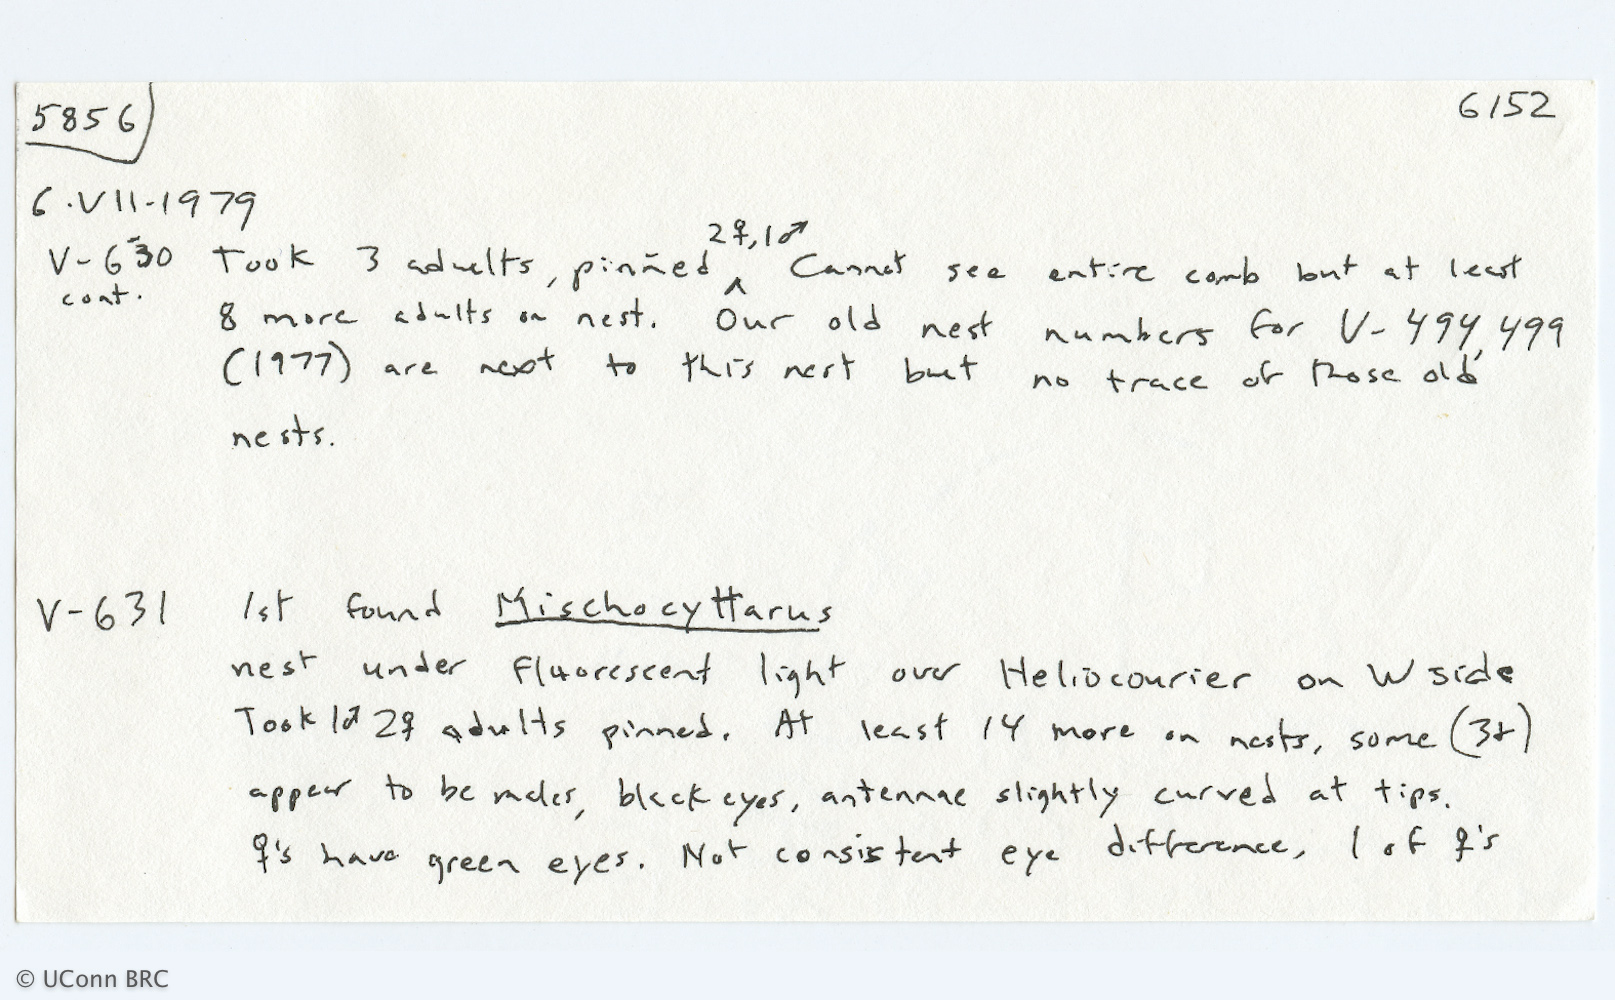 5856
6152
6.VII-1979
V-630 Took 3 adults, pinned ^ 2♀, 1♂ Cannot see entire comb but at least
cont. 8 more adults on nest. Our old nest numbers for V-494, 499
(1977) are next to this nest but no trace of those old
nests.
V-631 1st found Mischocyttarus
nest under fluorescent light over Heliocourier on W side
Took 1♂ 2♀ adults pinned. At least 14 more on nests, some (3+)
appear to be males, black eyes, antennae slightly curved at tips.
♀'s have green eyes. Not consistent eye difference, 1 of ♀'s
© UConn BRC